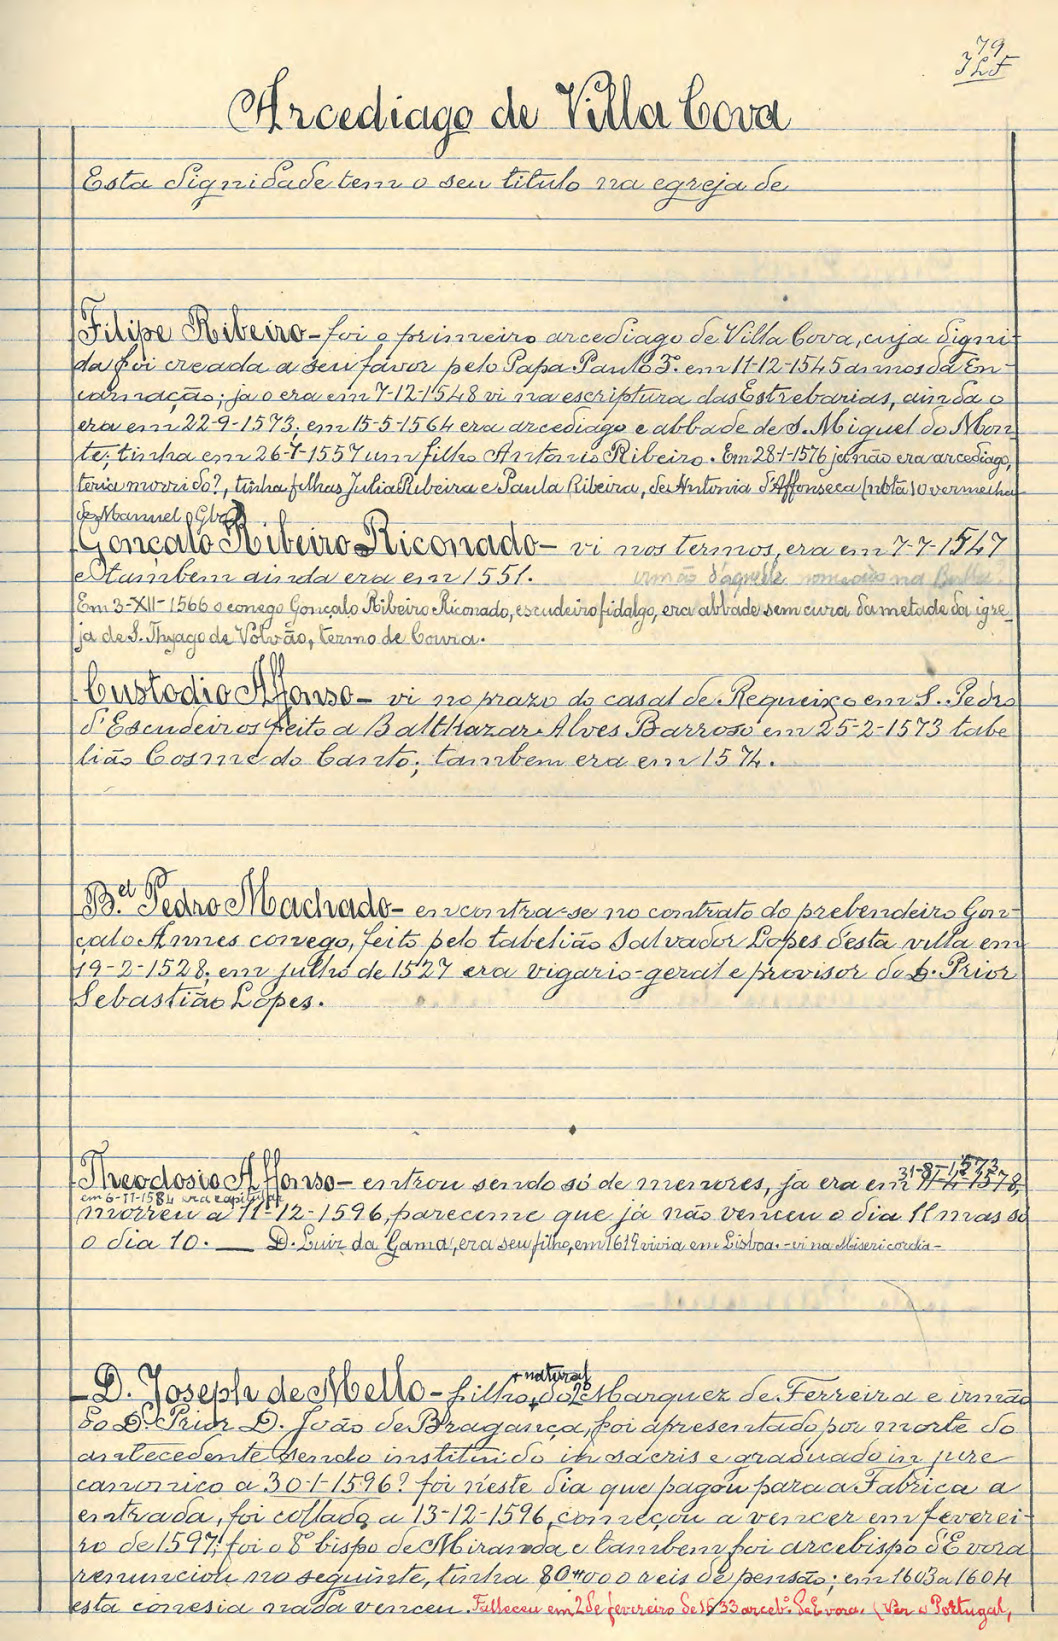 79
JLF
Arcediago de Villa Cova
Esta dignidade tem o seu titulo na egreja de
Filipe Ribeiro - foi o primeiro arcediago de Villa Cova, cuja digni-
da foi creada a seu favor pelo Papa Paulo 3º. em 11-12-1545 annos da En-
carnação; ja o era em 7-12-1548 vi na escriptura das Estrebarias, ainda o
era em 22-9-1573; em 15-5-1564 era arcediago e abbade de S. Miguel do Mon-
te; tinha em 26-4-1557 um filho Antonio Ribeiro. Em 28-1-1576 já não era arcediago,
teria morrido?, tinha filhas Julia Ribeira e Paula Ribeira, de Antonia d'Affonseca (nota) o vermelha
de Manuel
Gonçalo Ribeiro Riconado - vi nos termos, era em 7-7-1547
e tambem ainda era em 1551. irmão d'aquelle nomeado na Bulla?
Em 3-XII-1566 o conego Gonçalo Ribeiro Riconado, escudeiro fidalgo, era abbade sem cura da metade da igre-
ja de S. Thyago de Volvão, termo de Coura.
Custodio Affonso - vi no prazo do casal de Requeixo em S. Pedro
d'Escudeiros feito a Balthazar Alves Barroso em 25-2-1573 tabe
lião Cosme do Canto; tambem era em 1574.
B.el Pedro Machado - encontra-se no contrato do prebendeiro Gon-
çalo Annes conego, feito pelo tabelião Salvador Lopes d'esta villa em
19-2-1528; em julho de 1527 era vigario-geral e provisor do D. Prior
Sebastião Lopes.
Theodosio Affonso - entrou sendo só de menores, ja era em 31-8-1573
em 6-11-1584 era capitular
morreu a 11-12-1596, pareceme que já não venceu o dia 11 mas só
o dia 10. — D. Luiz da Gama, era seu filho, em 1619 vivia em Lisboa. - vi na Misericordia -
D. Joseph de Mello - filho + natural do 2º Marquez de Ferreira e irmão
do D. Prior D. João de Bragança, foi apresentado por morte do
antecedente sendo instituido in sacris e graduado in jure
canonico a 30-1-1596? foi n'este dia que pagou para a Fabrica a
entrada, foi collado a 13-12-1596, começou a vencer em feverei-
ro de 1597; foi o 8º bispo de Miranda e tambem foi arcebispo d'Evora
renunciou no seguinte, tinha 80#000 reis de pensão; em 1603 a 1604
esta conesia nada venceu. Falleceu em 2 de fevereiro de 1633 arceb.º de Evora. (Ver o Portugal,